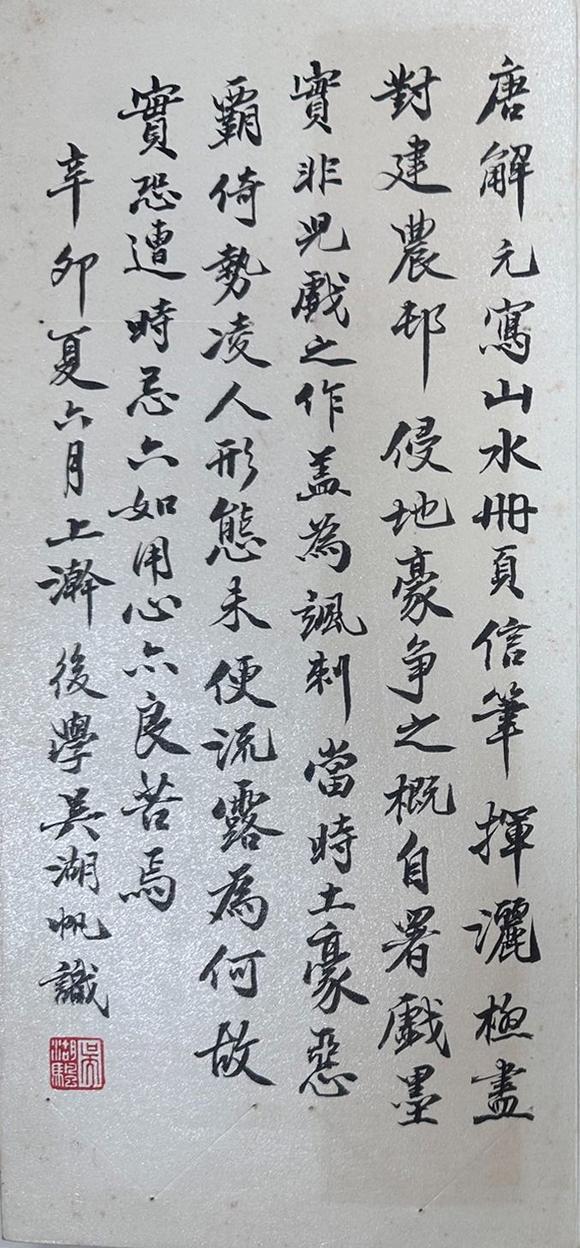 唐解元寫山水冊頁信筆揮灑極盡
對建農邨侵地豪争之概自署戲墨
實非兒戲之作盖為諷刺當時土豪惡
霸倚勢凌人形態未便流露為何故
實恐遭時忌六如用心亦良苦焉
辛卯夏六月上澣後學吳湖帆識
吳湖颿